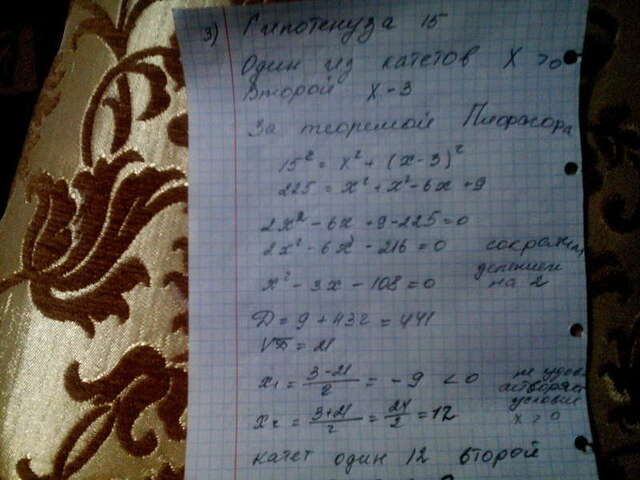 3) Гипотенуза 15
Один из катетов X >0
Второй X-3
За теоремой Пифагора
15² = x² + (x-3)²
225 = x² + x² - 6x + 9
2x² - 6x + 9 - 225 = 0
2x² - 6x - 216 = 0 сокращаем
делением
x² - 3x - 108 = 0 на 2
Д = 9 + 432 = 441
√Д = 21
x₁ = (3-21)/2 = -9 < 0 не удов
летворяет
условие
x₂ = (3+21)/2 = 24/2 = 12 x > 0
катет один 12 второй